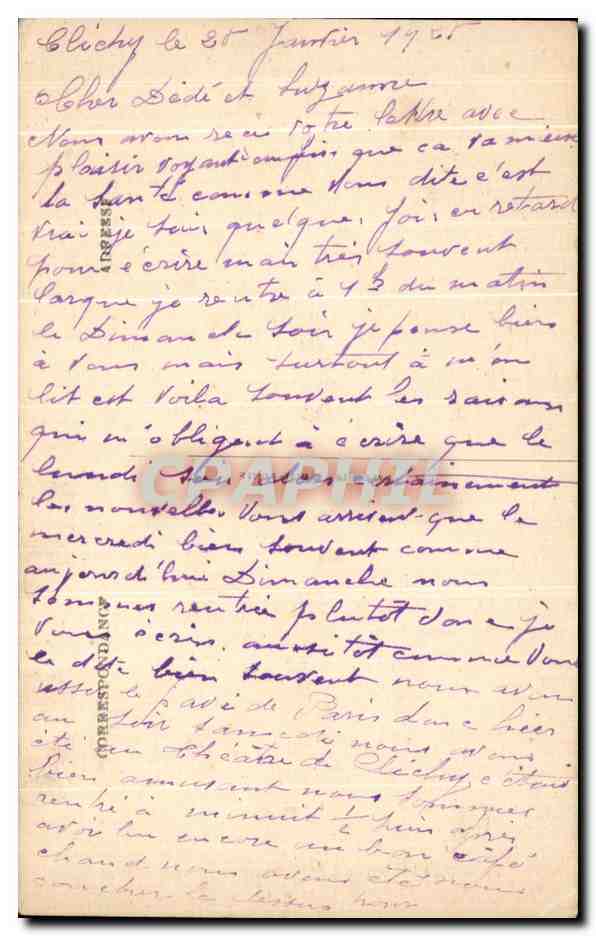 Clichy le 25 Janvier 1925
Cher Dédé et Suzanne
Nous avons recu votre lettre avec
plaisir voyant que ca va mieux
la santé comme vous dite c'est
vrai je suis quelque fois en retard
pour écrire mais très souvent
lorque je rentre à 1h du matin
le Dimanche soir je pense bien
à vous mais surtout à m'en
lit est voila souvent les raisons
qui m'obligent à écrire que le
lundi alors certainement
les nouvelles vous arrivent que le
mercredi bien souvent comme
aujourd'hui Dimanche nous
sommes rentrée plutôt donc je
vous écris aussitôt comme vous
le dite bien souvent nous avons
usser le pavé de Paris donc hier
au soir samedi nous avons
été au théâtre de Clichy c'était
bien amusant nous sommes
rentré à minuit 1/2 puis après
avoir bu encore un bon café
chaud nous avons été nous
coucher la dessus pour
ADRESSE
CORRESPONDANCE
CAPHIL